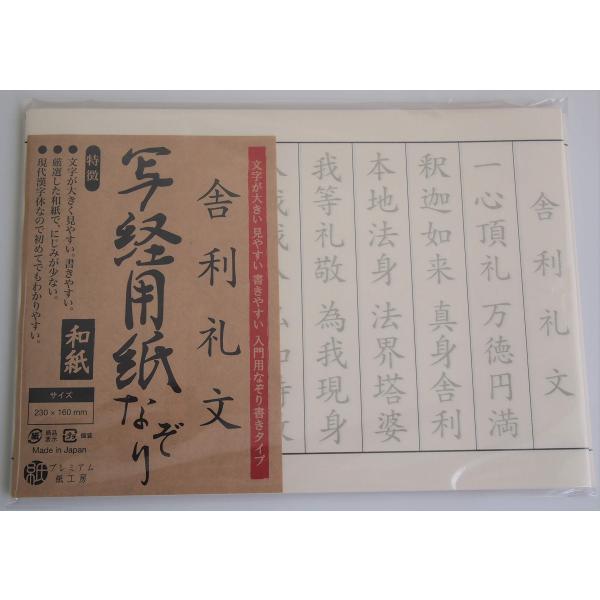 舎利礼文
一心頂礼 万徳円満
釈迦如来 真身舎利
本地法身 法界塔婆
我等礼敬 為我現身
文字が大きい 見やすい 書きやすい 入門用なぞり書きタイプ
舎利礼文
写経用紙なぞり
和紙
特徴
●文字が大きく見やすい。書きやすい。
●厳選した和紙で、にじみが少ない。
●現代漢字体なので初めてでもわかりやすい。
サイズ
230×160mm
紙 商品表示 プラ 個装
Made in Japan
紙 プレミアム紙工房